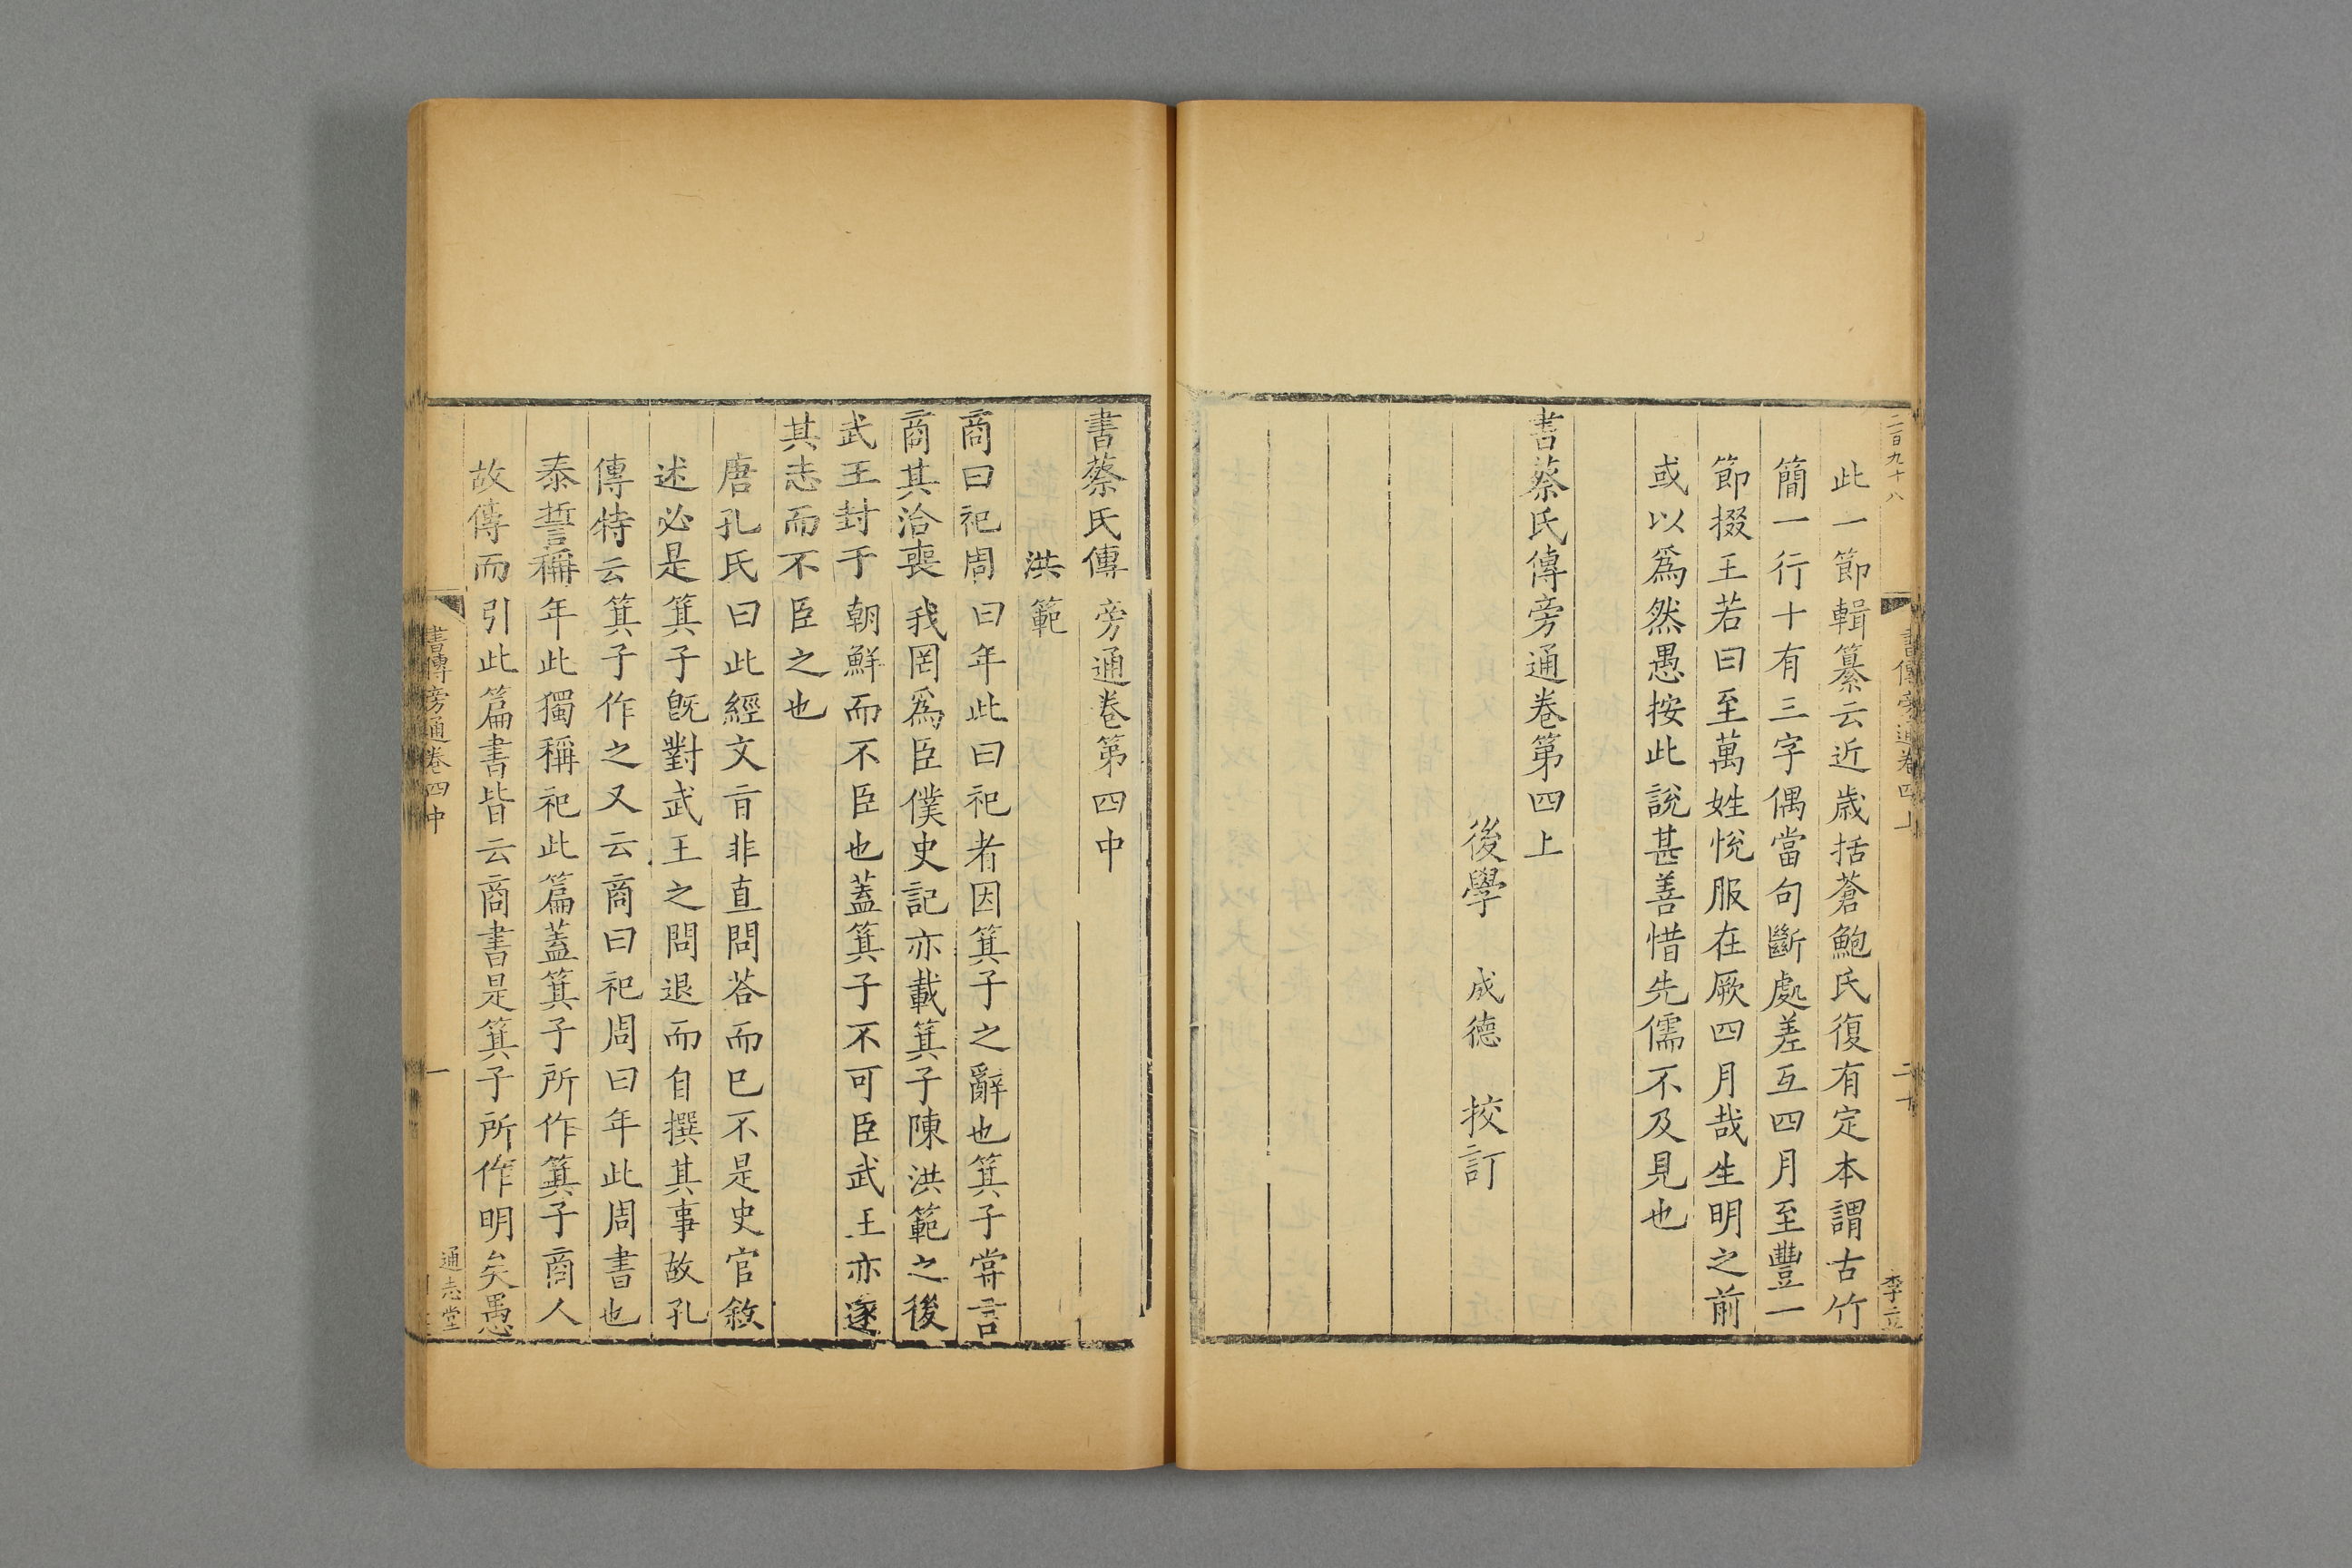 二百九十八
書傳旁通卷四上
二十
李立
此一節輯纂云近歲括蒼鮑氏復有定本謂古竹
簡一行十有三字偶當句斷處差互四月至豐一
節掇王若曰至萬姓悅服在厥四月哉生明之前
或以爲然愚按此說甚善惜先儒不及見也
書蔡氏傳旁通卷第四上
後學 成德 挍訂
書蔡氏傳旁通卷第四中
洪範
商曰祀周曰年此曰祀者因箕子之辭也箕子甞言
商其淪喪我罔爲臣僕史記亦載箕子陳洪範之後
武王封于朝鮮而不臣也蓋箕子不可臣武王亦遂
其志而不臣之也
唐孔氏曰此經文㫖非直問荅而已不是史官敘
述必是箕子旣對武王之問退而自撰其事故孔
傳特云箕子作之又云商曰祀周曰年此周書也
泰誓稱年此獨稱祀此篇蓋箕子所作箕子商人
故傳而引此篇書皆云商書是箕子所作明矣愚
書傳旁通卷四中
一
通志堂